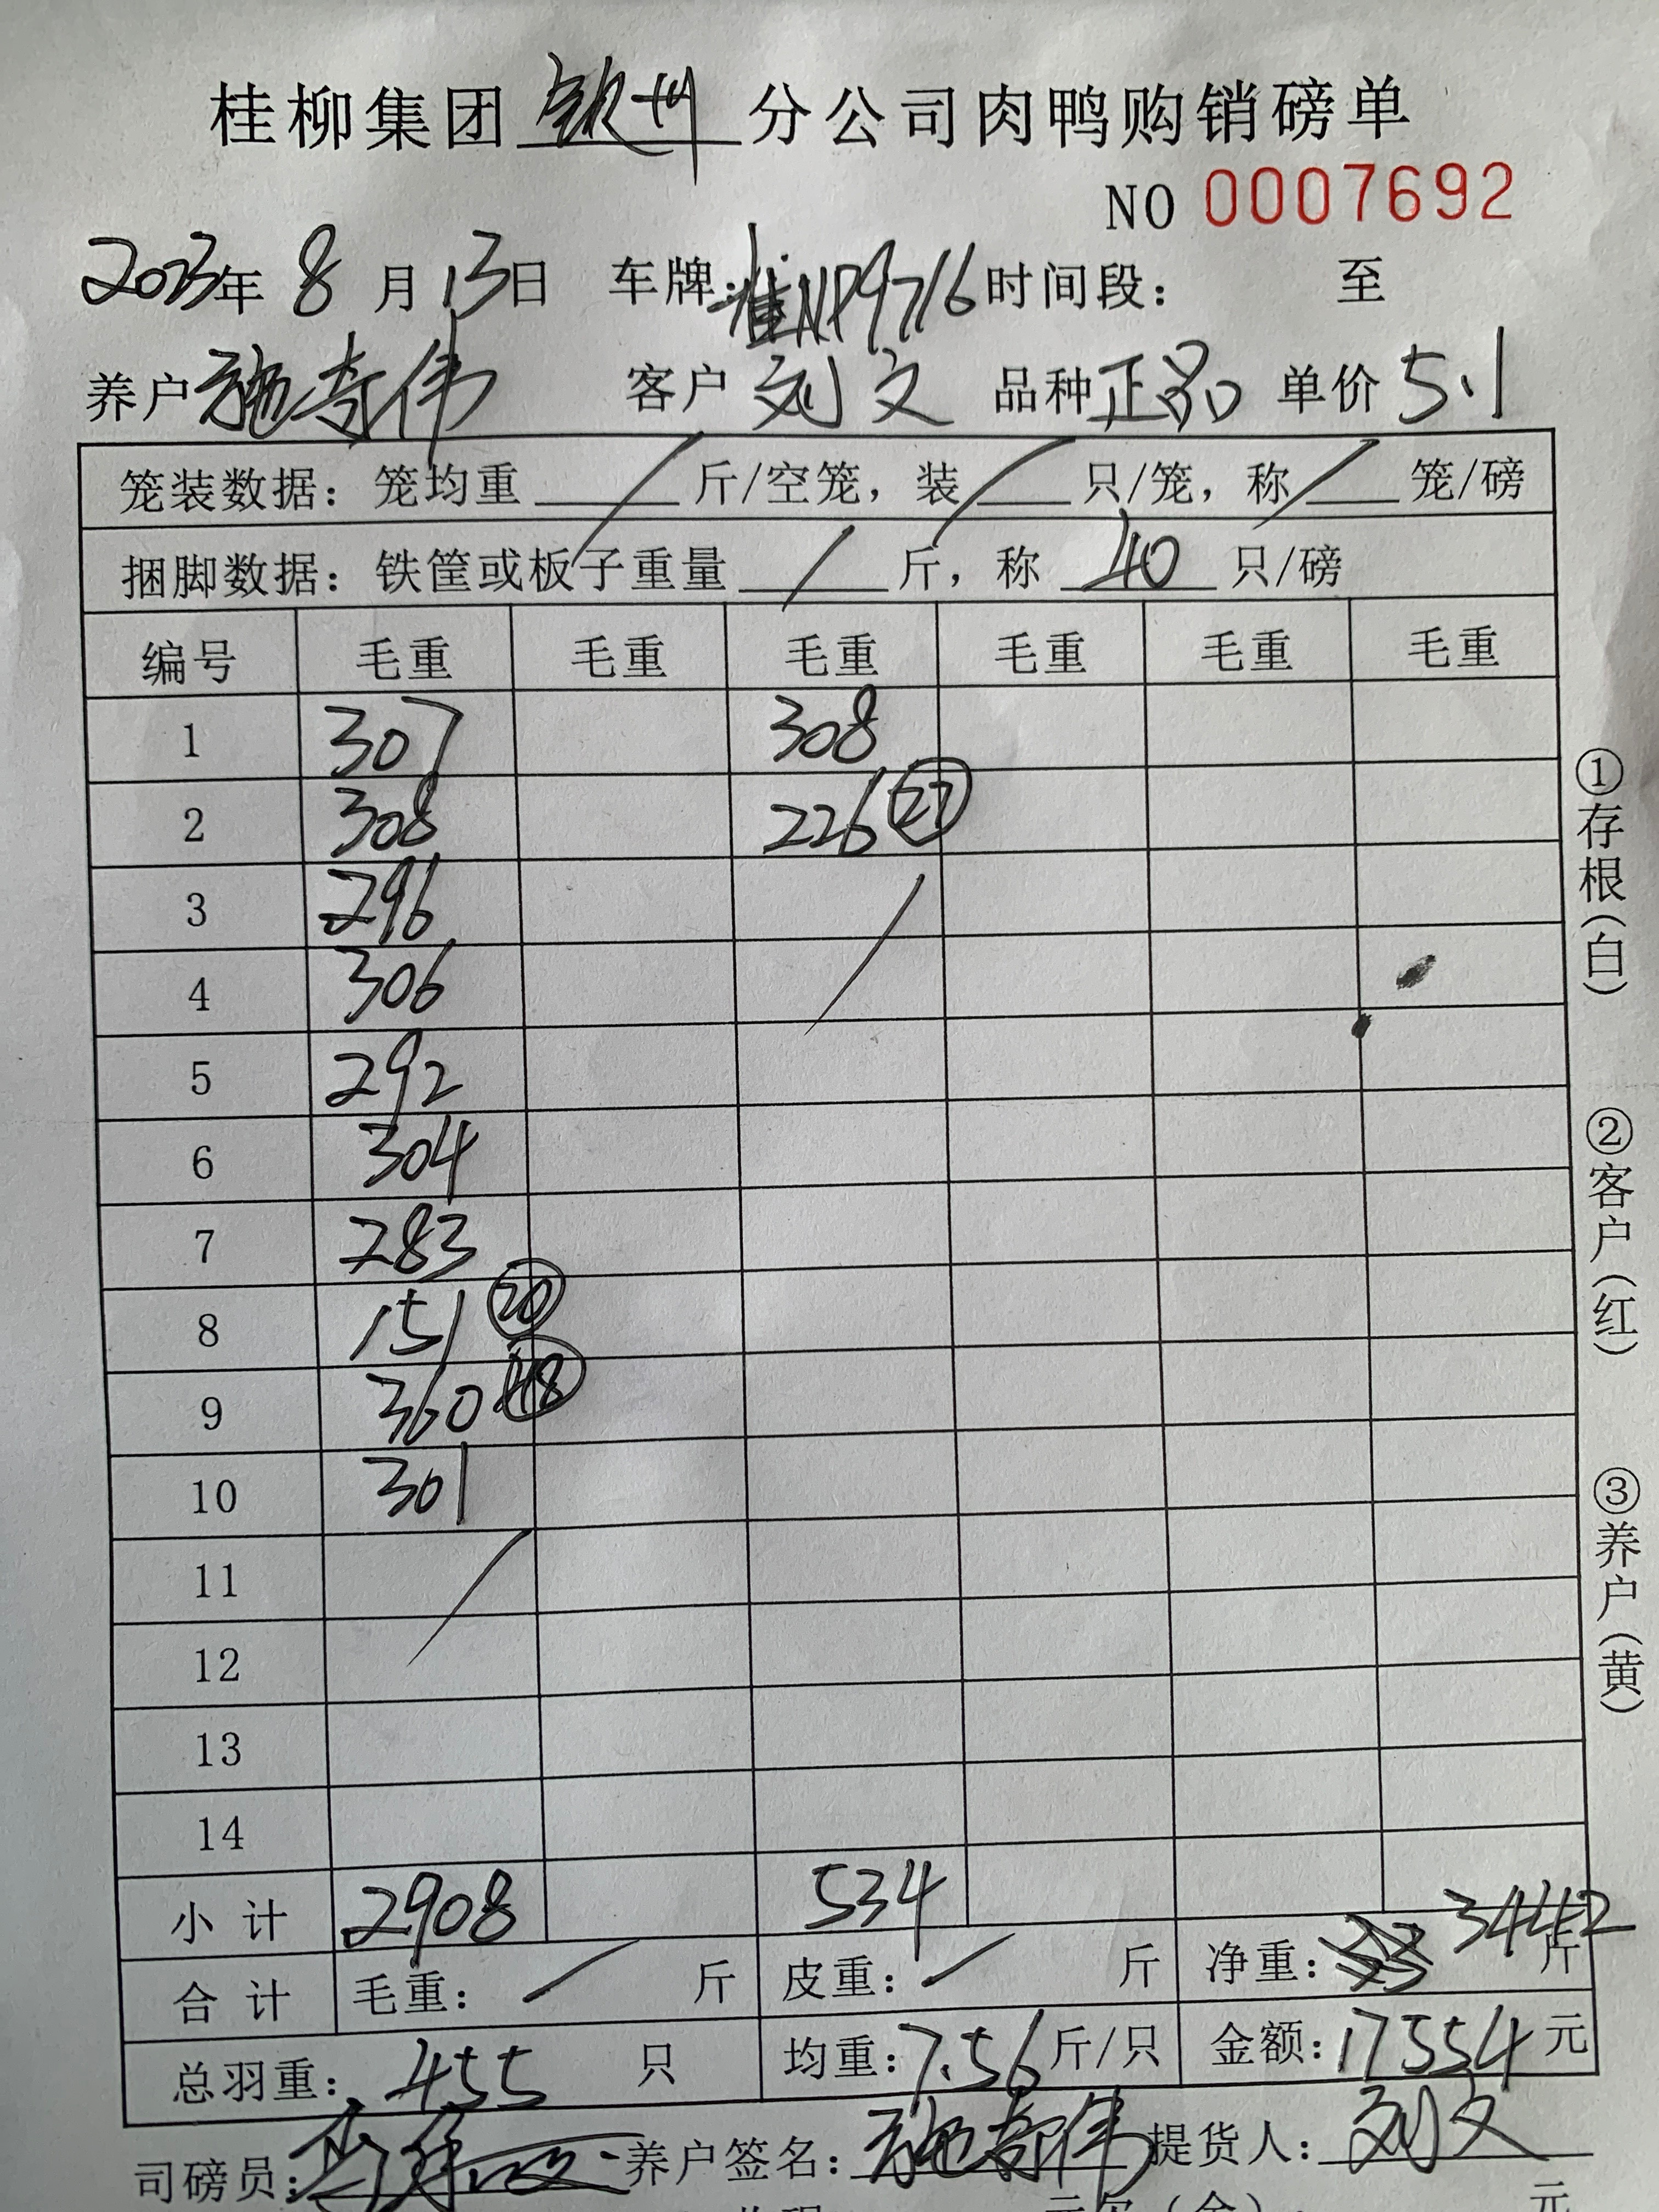 桂柳集团 钦州 分公司肉鸭购销磅单
NO 0007692
2023年 8 月 13日 车牌:桂NP9716 时间段: 至
养户 施奇伟 客户 刘文 品种 正品 单价 5.1
笼装数据: 笼均重 / 斤/空笼, 装 / 只/笼, 称 / 笼/磅
捆脚数据: 铁筐或板子重量 / 斤, 称 40 只/磅
编号 毛重 毛重 毛重 毛重 毛重 毛重
1 307 308
2 308 226 27
3 296 /
4 306
5 292
6 304
7 283
8 151 20
9 360 48
10 301
11 /
12
13
14
小计 2908 534
合计 毛重: / 斤 皮重: / 斤 净重: 3442 斤
总羽重: 455 只 均重: 7.56 斤/只 金额: 17554 元
司磅员: 养户签名: 施奇伟 提货人: 刘文
元
①存根(白)
②客户(红)
③养户(黄)